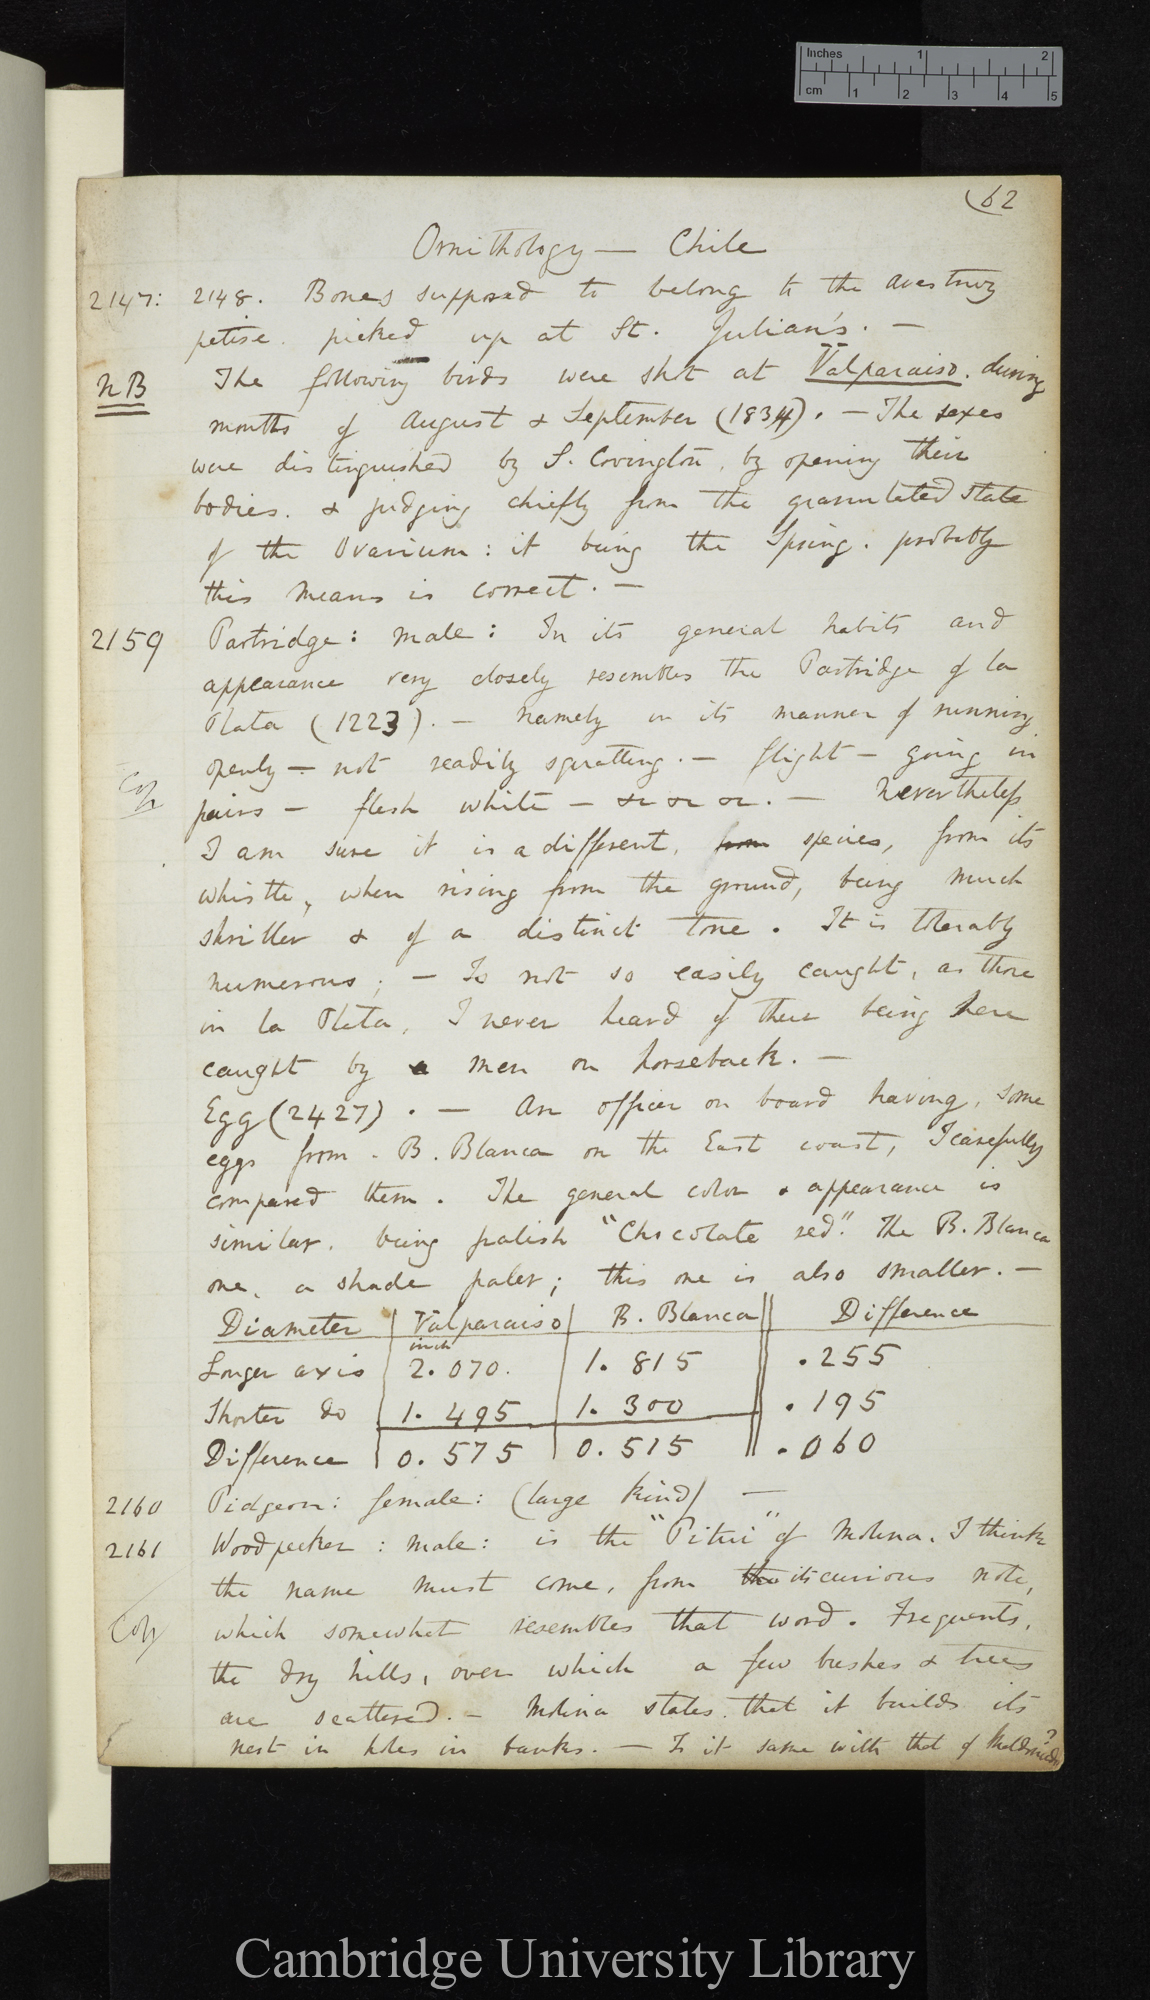 Inches 1 2
cm 1 2 3 4 5
(62
Ornithology — Chile
2147: 2148. Bones supposed to belong to the avestruz
petise. picked up at St. Julian's. —
NB The following birds were shot at Valparaiso. during
months of August & September (1834). — The sexes
were distinguished by S. Covington, by opening their
bodies. & judging chiefly from the granulated state
of the Ovarium: it being the Spring. probably
this means is correct. —
2159 Partridge: male: In its general habits and
appearance very closely resembles the Partridge of la
Plata (1223). — namely in its manner of running
openly — not readily squatting. — flight — going in
pairs — flesh white — &c &c &c. — Nevertheless
I am sure it is a different, from species, from its
whistle, when rising from the ground, being much
shriller & of a distinct tone. It is tolerably
numerous; — Is not so easily caught, as those
in la Plata, I never heard of their being here
caught by a men on horseback. —
Egg (2427). — An officer on board having, some
eggs from. B. Blanca on the East coast, I carefully
compared them. The general color & appearance is
similar. being palish "Chocolate red". The B. Blanca
one, a shade paler; this one is also smaller. —
Diameter Valparaiso B. Blanca Difference
Longer axis inch 2.070. 1.815 .255
Shorter do 1.495 1.300 .195
Difference 0.575 0.515 .060
2160 Pidgeon: female: (large kind) —
2161 Woodpecker: male: is the "Pitui" of Molina. I think
the name must come, from the its curious note,
which somewhat resembles that word. Frequents,
the dry hills, over which a few bushes & trees
are scattered. — Molina states. that it builds its
nest in holes in banks. — Is it same with that of Maldonado?
Cambridge University Library